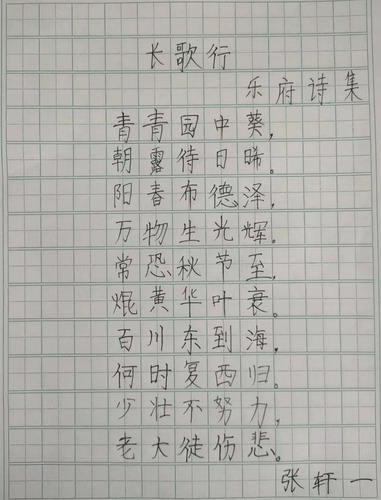 长歌行
乐府诗集
青青园中葵,
朝露待日晞。
阳春布德泽,
万物生光辉。
常恐秋节至,
焜黄华叶衰。
百川东到海,
何时复西归。
少壮不努力,
老大徒伤悲。
张轩一